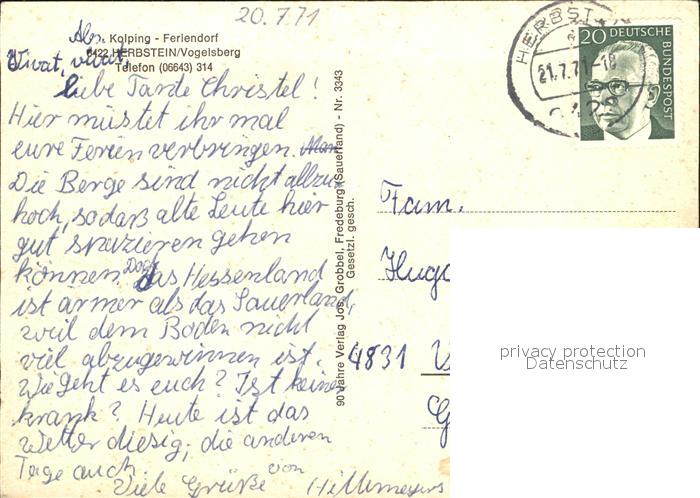 20.7.71
Abs. Kolping - Feriendorf
6422 HERBSTEIN/Vogelsberg
Telefon (06643) 314
Vivat, vivat,
Liebe Tante Christel!
Hier müstet ihr mal
eure Ferien verbringen.
Die Berge sind nicht allzu
hoch, sodaß alte Leute hier
gut spazieren gehen
können. Doch das Hessenland
ist ärmer als das Sauerland,
weil dem Boden nicht
viel abzugewinnen ist.
Wie geht es euch? Ist keiner
krank? Heute ist das
Wetter diesig, die anderen
Tage auch.
Viele Grüße von Hillemeyers
90 Jahre Verlag Jos. Grobbel, Fredeburg (Sauerland) - Nr. 3343
Gesetzl. gesch.
HERBSTEIN
21.7.71-18
642
20 DEUTSCHE
BUNDESPOST
Fam.
Hugo
4831
privacy protection
Datenschutz